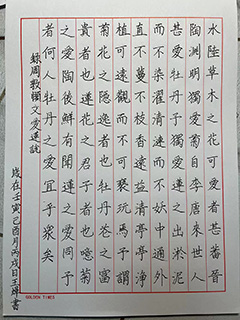 水陸草木之花可愛者甚蕃晉
陶淵明獨愛菊自李唐來世人
甚愛牡丹予獨愛蓮之出淤泥
而不染濯清漣而不妖中通外
直不蔓不枝香遠益清亭亭淨
植可遠觀而不可褻玩焉予謂
菊花之隱逸者也牡丹花之富
貴者也蓮花之君子者也噫菊
之愛陶後鮮有聞蓮之愛同予
者何人牡丹之愛宜乎眾矣
錄周敦頤文愛蓮說
歲在壬寅己酉月丙戌日王書
GOLDEN TIMES